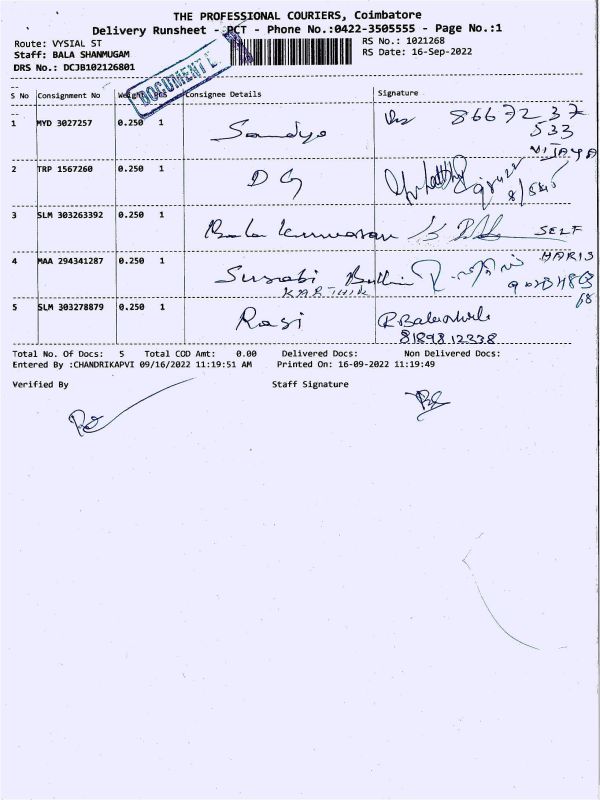 THE PROFESSIONAL COURIERS, Coimbatore
Delivery Runsheet - PCT - Phone No.:0422-3505555 - Page No.:1
Route: VYSIAL ST
Staff: BALA SHANMUGAM
DRS No.: DCJB102126801
RS No.: 1021268
RS Date: 16-Sep-2022
DOCUMENT
S No Consignment No Weight Pcs Consignee Details Signature
1 MYD 3027257 0.250 1 Sandya 86672 37
533
VIJAYA
2 TRP 1567260 0.250 1 D G
3 SLM 303263392 0.250 1 Bala kumaran SELF
4 MAA 294341287 0.250 1 Surabi HARIS
KARTHIK
68
5 SLM 303278879 0.250 1 Rasi
81898 12238
Total No. Of Docs: 5 Total COD Amt: 0.00 Delivered Docs: Non Delivered Docs:
Entered By :CHANDRIKAPVI 09/16/2022 11:19:51 AM Printed On: 16-09-2022 11:19:49
Verified By Staff Signature